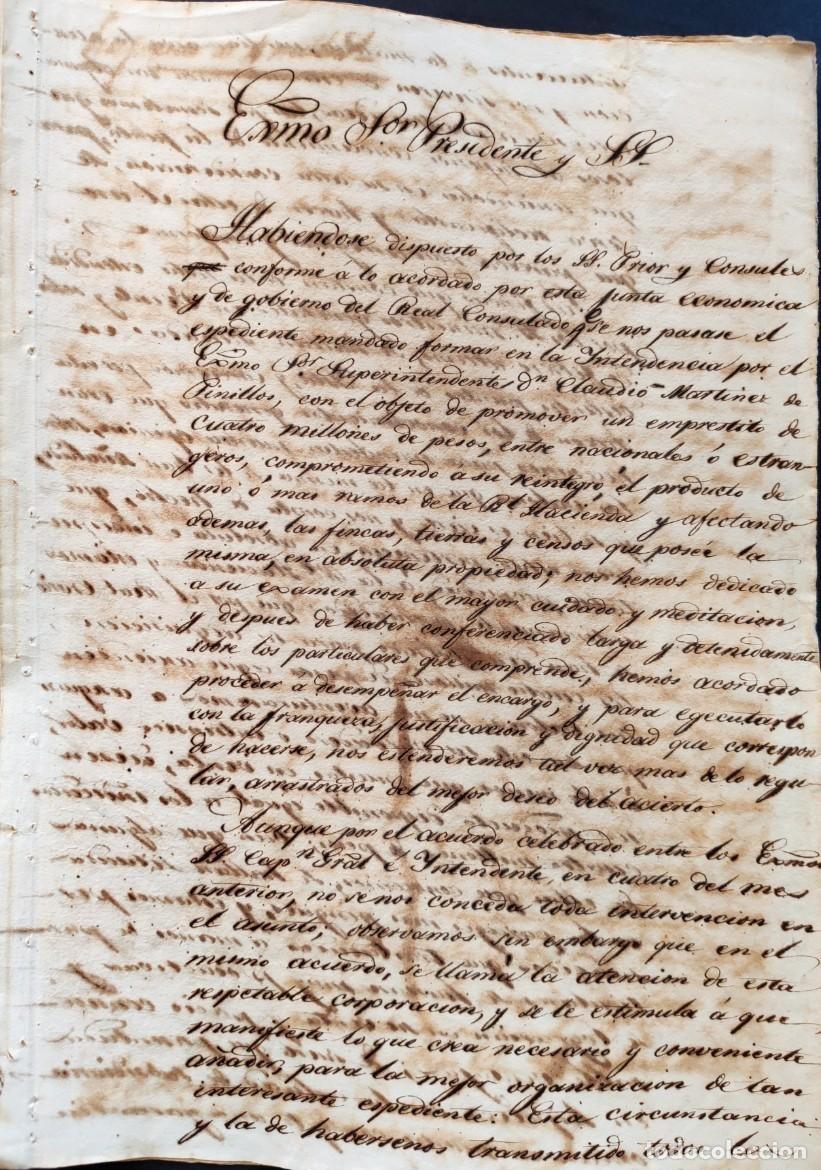 Exmo Sor Presidente y SS.
Habiendose dispuesto por los SS. Prior y Consules
que conforme á lo acordado por esta Junta economica
y de gobierno del Real Consulado qe se nos pasase el
espediente mandado formar en la Intendencia por el
Exmo Sor Superintendente Dn Claudio Martinez de
Pinillos, con el objeto de promover un emprestito de
cuatro millones de pesos, entre nacionales ó estran-
geros, comprometiendo a su reintegro el producto de
uno ó mas ramos de la Rl Hacienda y afectando
ademas, las fincas, tierras y censos que poseé la
misma, en absoluta propiedad; nos hemos dedicado
a su examen con el mayor cuidado y meditacion,
y despues de haber conferenciado larga y detenidamente
sobre los particulares que comprende, hemos acordado
proceder á desempeñar el encargo, y para egecutarlo
con la franqueza, justificacion y dignidad que correspon
de hacerse, nos estenderemos tal vez mas de lo regu-
lar, arrastrados del mejor deseo del ácierto.
Aunque por el acuerdo celebrado entre los Exmos
SS. Capn Gral é Intendente, en cuatro del mes
anterior, no se nos conceda toda intervencion en
el asunto; observamos sin embargo que en el
mismo acuerdo, se llama la atencion de esta
respetable corporacion, y se le estimula á que
manifieste lo que crea necesario y conveniente
añadir, para la mejor organizacion de tan
interesante espediente: Esta circunstancia
y la de habersenos transmitido
todocoleccion